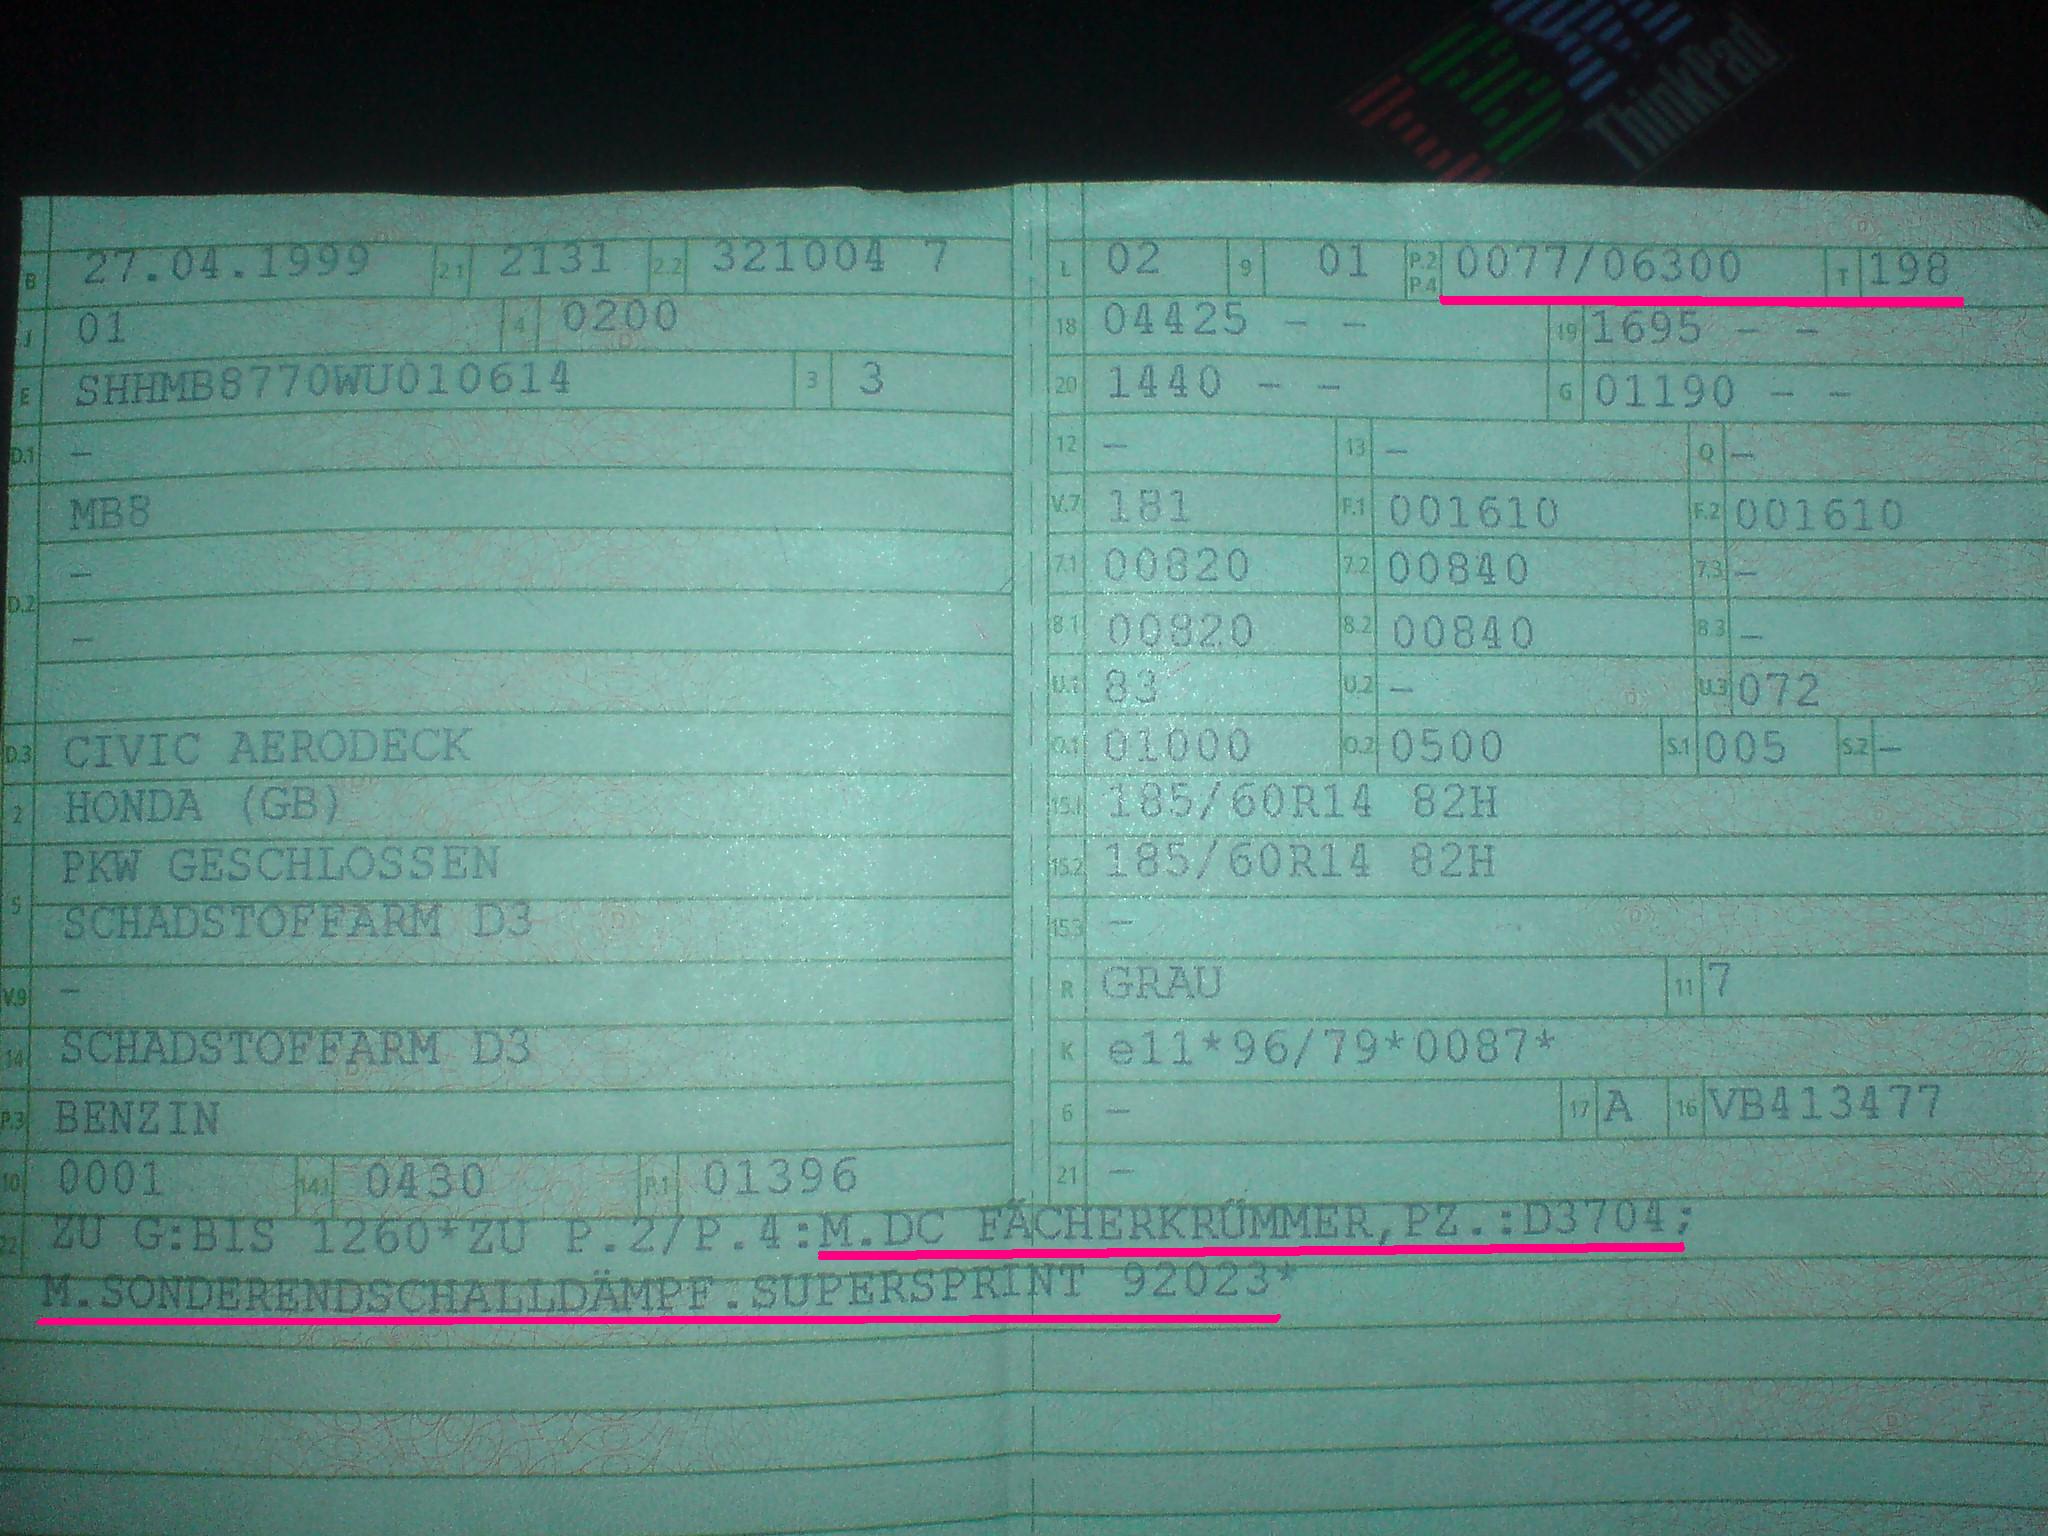 IBM
ThinkPad
B 27.04.1999 2.1 2131 2.2 321004 7
J 01 4 0200
E SHHMB8770WU010614 3 3
D.1 –
MB8
–
D.2
–
D.3 CIVIC AERODECK
2 HONDA (GB)
PKW GESCHLOSSEN
5 SCHADSTOFFARM D3
V.9 –
14 SCHADSTOFFARM D3
P.3 BENZIN
10 0001 14.1 0430 P.1 01396
L 02 9 01 P.2 P.4 0077/06300 T 198
18 04425 – – 19 1695 – –
20 1440 – – G 01190 – –
12 – 13 – Q –
V.7 181 F.1 001610 F.2 001610
7.1 00820 7.2 00840 7.3 –
8.1 00820 8.2 00840 8.3 –
U.1 83 U.2 – U.3 072
O.1 01000 O.2 0500 S.1 005 S.2 –
15.1 185/60R14 82H
15.2 185/60R14 82H
15.3 –
R GRAU 11 7
K e11*96/79*0087*
6 – 17 A 16 VB413477
21 –
22 ZU G:BIS 1260*ZU P.2/P.4:M.DC FÄCHERKRÜMMER,PZ.:D3704;
M.SONDERENDSCHALLDÄMPF.SUPERSPRINT 92023*